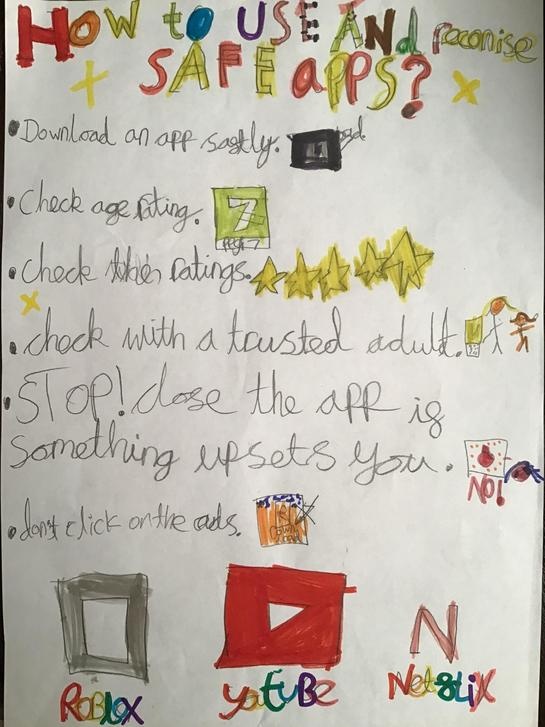 How to USE And reconise
SAFE apps?
• Download an app saftly.
• Check age rating. 7
• Check the ratings.
• check with a trusted adult.
• STOP! close the app if
something upsets you.
NO!
• don't click on the ads.
N
RoBlox youtuBe Netflix